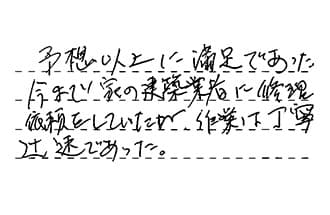 予想以上に満足であった
今まで家の建築業者に修理
依頼をしていたが、作業は丁寧
迅速であった。